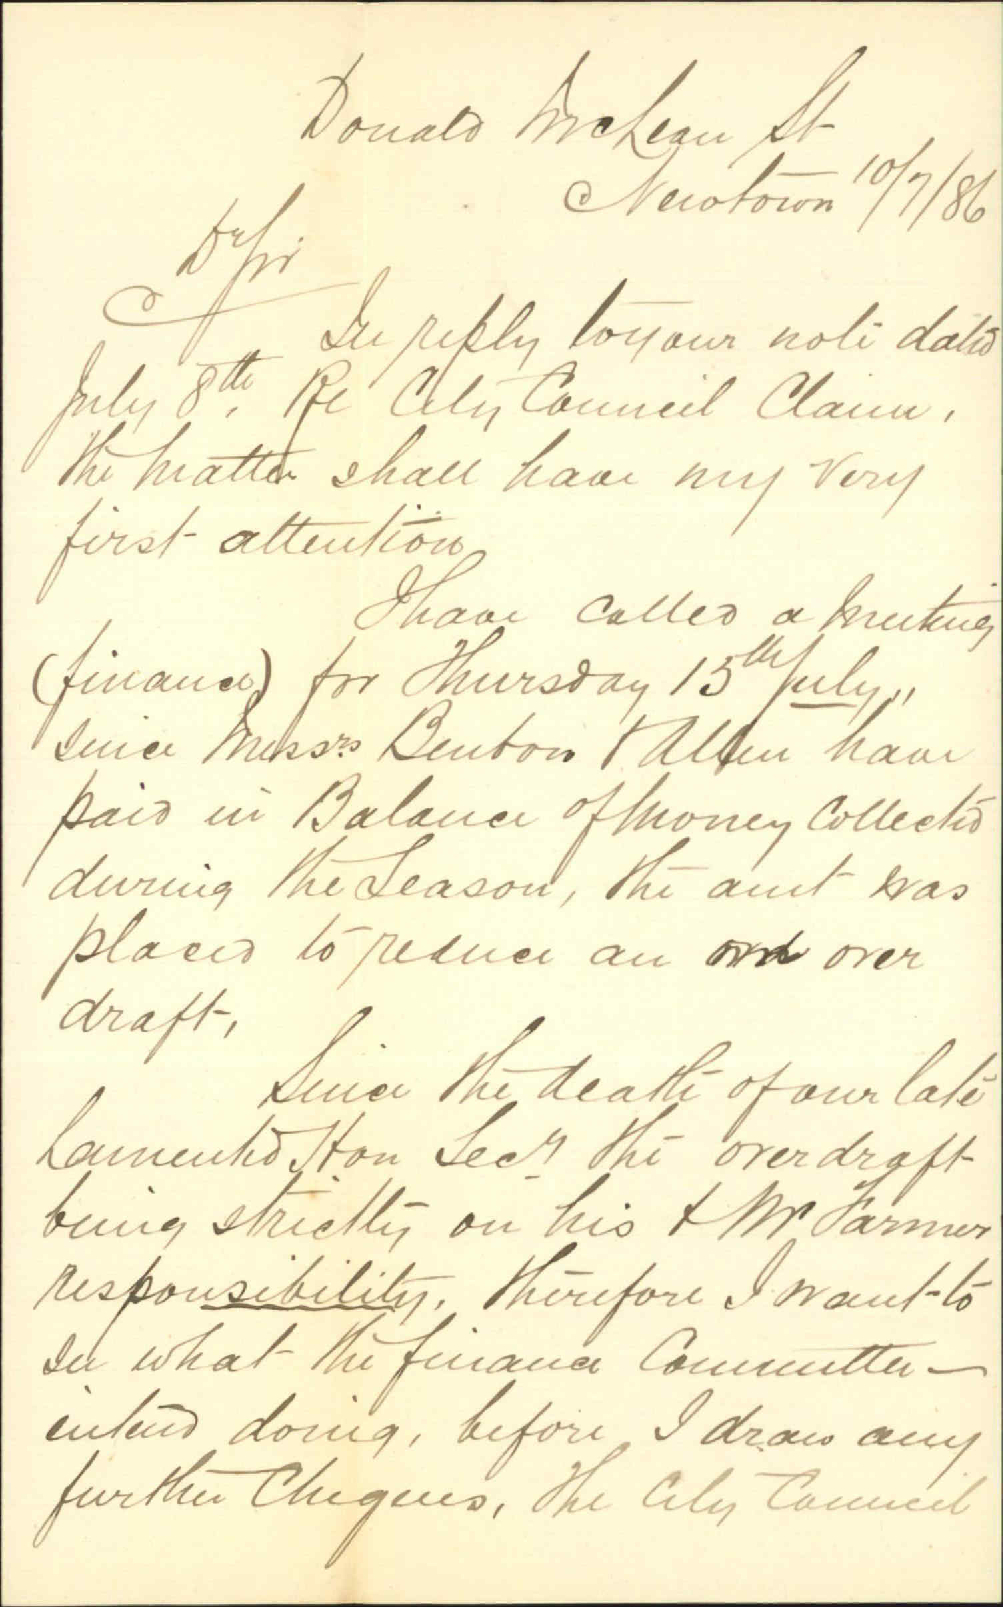 Donald McLean St
Newtown 10/7/86
Dr Sir
In reply to your note dated
July 8th, Re City Council Claim,
the matter shall have my very
first attention
I have called a meeting
(finance) for Thursday 15th July,,
since Messrs Benbow & Allen have
paid in Balance of money collected
during the Season, the amt was
placed to reduce an over
draft,
Since the death of our late
Lamented Hon Secy the overdraft
being strictly on his & Mr Farmer
responsibility, therefore I want to
see what the finance Committee —
intend doing, before I draw any
further Cheques, The City Council